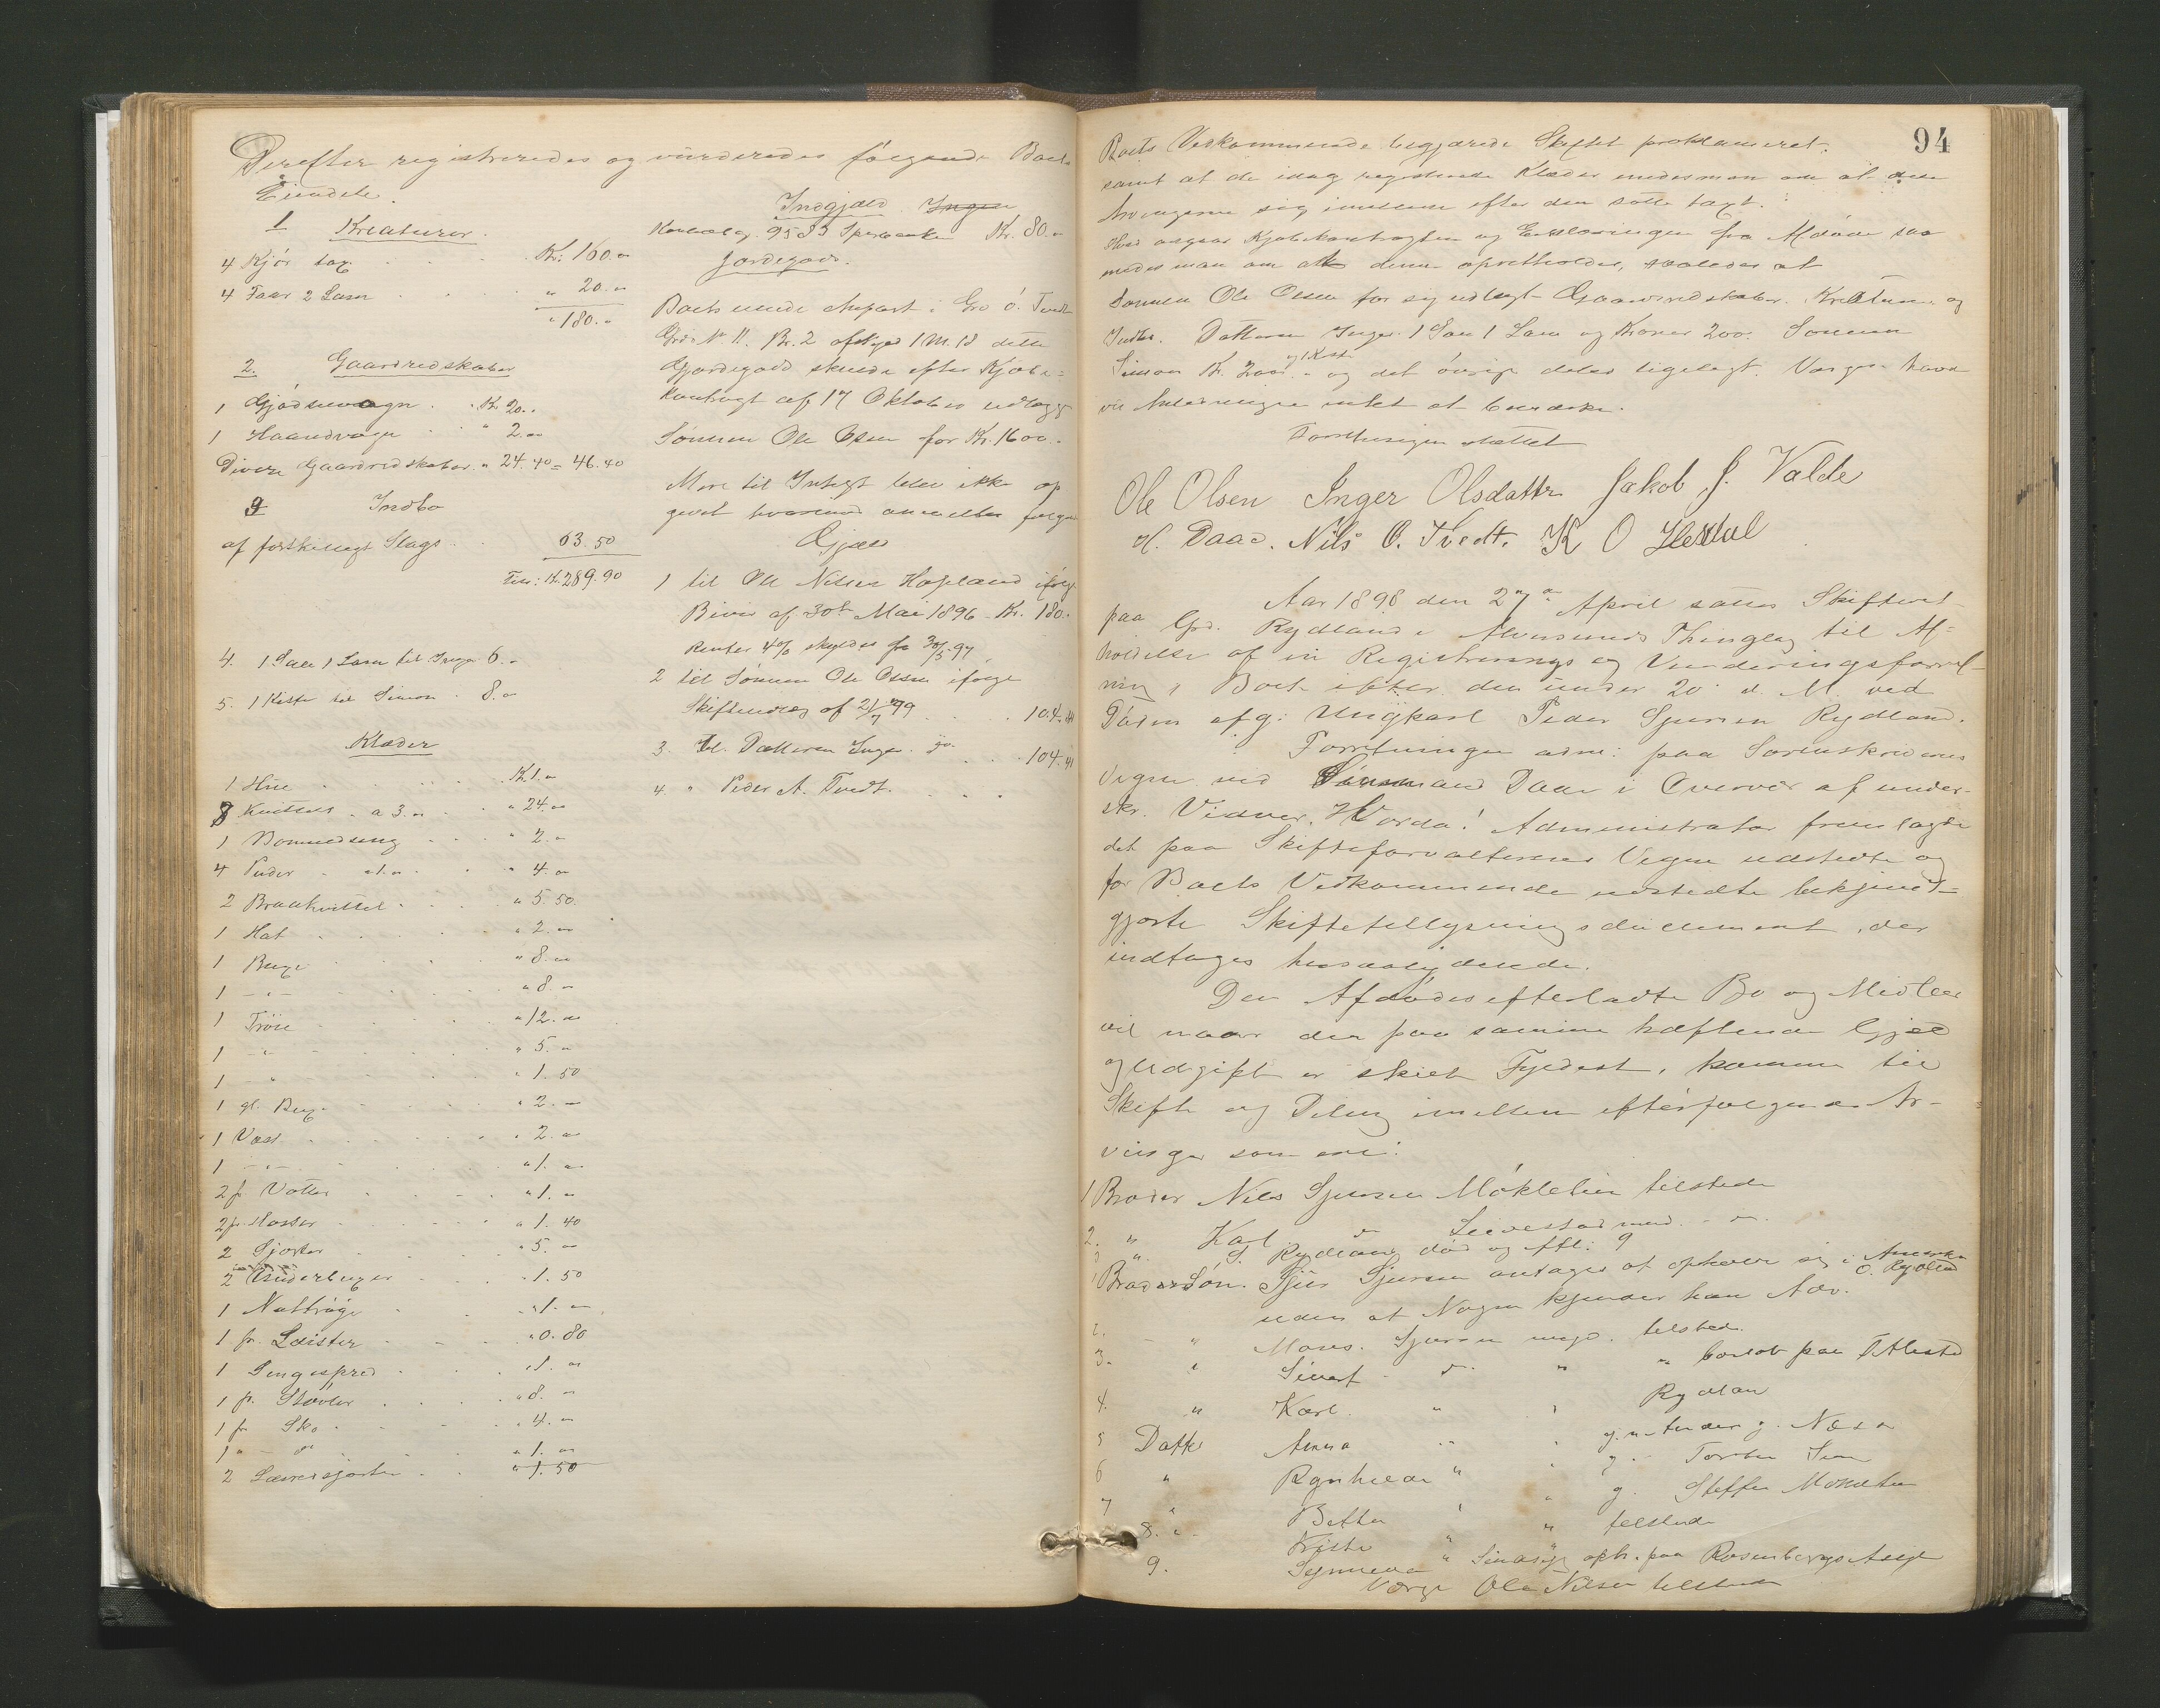 Derefter registreredes og vurderedes følgende Boets
Eiendele.
1 Kreaturer.
4 Kjør tax. Kr. 160.„
4 Faar 2 Lam „ 20.„
„ 180.„
2. Gaardredskaber
1 Gjødselvogn Kr. 20.„
1 Haandvogn „ 2.„
Divese Gaardredskaber „ 24.40 = 46.40
3 Indbo
af forskjelligt Slags 63.50
Kr. 289.90
4. 1 Sau 1 Lam til Inger 6.„
5. 1 Kiste til Simon 8.„
Klæder
1 Hue Kr. 1.„
8 a 3.„ „ 24.„
1 „ 2.„
4 Puder „ 4.„
2 Braakvittel „ 5.50
1 Hat „ 2.„
1 Buxe „ 8.„
1 — „ — „ 8.„
1 Trøie „ 12.„
1 — „ — „ 5.„
1 — „ „ 1.50
1 gl. Buxe „ 2.„
1 Væst „ 2.„
1 — „ — „ 1.„
2 p Votter „ 1.„
2 pr. Hoser „ 1.40
2 Sjorter „ 5.„
2 Underbuxer „ 1.50
1 Nattrøie „ 1.„
1 pr. Læister „ 0.80
1 Sengespred „ 1.„
1 pr. Støvler „ 8.„
1 pr Sko „ 4.„
1 „ — do „ 1.„
2 Lærredsjorter „ 1.50
Indgjæld Ingen
9583 Sparbanken Kr. 80.„
Jordegods.
Boets Anpart i Grd Ø. Tvedt
Grds No 11. Br. 2 af Skyld 1 M. 18 dette
Jordegods skulde efter Kjøbe=
kontragt af 17 Oktober udlægges
Sønnen Ole Olsen for Kr. 1600.„
Mere til Indtægt blev ikke op
givet hvorimod anmeldtes følgende
Gjæld
1 til Ole Nilsen Hopland ifølge
Bevis af 30te Mai 1896 Kr. 180.
Renter 4% skyldes fra 30/5 97
2 til Sønnen Ole Olsen ifølge
Skifteudlæg af 104.41
3. til Datteren Inger do. 104.41
4. „ Peder A. Tvedt.
94
Boets Vedkommende begjærede Skiftet proklameret.
samt at de idag registrerede Klæder enedes man om at dele
Arvingerne sig imellem efter den satte taxt.
Hvad angaar Kjøbekontragten og Erklæringen fra Afdøde saa
enedes man om at denne opretholdes, saaledes at
Sønnen Ole Olsen for sig udlagt Gaardredskaber, Kreaturer og
Indbo. Datteren Inger 1 Sau 1 Lam og Kroner 200. Sønnen
og 1 Kiste
Simon Kr. 200.„ og det øvrige deles ligelagt. Værgen havde
ved Anledningen intet at bemærke.
Forretningen sluttet
Ole Olsen Inger Olsdatter Jakob J. Valde
H. Daae. Nils O. Tvedt. K O Hestdal
Aar 1898 den 27de April sattes Skifteret
paa Grd. Rydland i Alversunds Thinglag til Af=
holdelse af en Registrerings og Vurderingsforret-
ning i Boet efter den under 20 d. M. ved
Døden afg: Ungkarl Peder Sjursen Rydland.
Forretningen adm: paa Sorenskriverens
Vegne ved Lensmand Daae i Overvær af under-
skr. Vidner. Hvorda! Administrator fremlagde
det paa Skifteforvalterens Vegne udstedte og
for Boets Vedkommende udstedte bekjendt-
gjorte Skiftetillysningsdocument, der
indtages saalydende.
Den Afdødes efterladte Bo og Midler
vil naar den paa samme hæftende Gjæld
og Udgift er skeet Fyldest, komme til
Skifte og Deling imellem efterfølgende Ar-
vinger som ere:
1 Broder Nils Sjursen Mökleben tilstede
2. „ Karl do Seivestad mynd. — do.
3 „ S. Rydland død og eftl: 9
1 Broder Søn. Sjur Sjursen antages at opholde sig i Amerika
uden at Nogen kjender han Adr. O. Rydland
2. — „ Mons. Sjursen myd. tilstede.
3. „ Sivert — do „ „ bosat paa
4. „ Karl „ „ Rydland
5 Datter Anna „ „ g. m. Anders J. Næs
6 „ Rgnhilda „ „ g. Torbe
7 „ Bertha „ „ g. Steffen
8. „ Kristi „ „ tilstede
9. Synneva „ Sindsyg oph. paa Rosenbergs Asyl
Værge Ole Nilsen tilstede